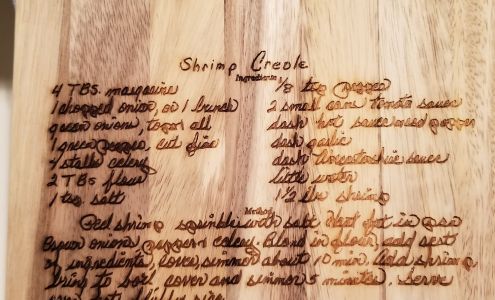 Shrimp Creole
Ingredients
4 TBS. margarine
1 chopped onion, or 1 bunch
green onions, tops & all
1 green pepper, cut fine
4 stalks celery
2 TBS flour
1 tsp salt
1/8 tsp pepper
2 small cans tomato sauce
dash hot sauce red pepper
dash garlic
dash Worcestershire sauce
little water
1 1/2 lbs shrimp
Method
Peel shrimp sprinkle with salt. Heat fat in pan
Brown onions, pepper & celery. Blend in flour, add rest
of ingredients, cover, simmer about 10 min. Add shrimp
bring to boil cover and simmer 5 minutes. Serve
over hot